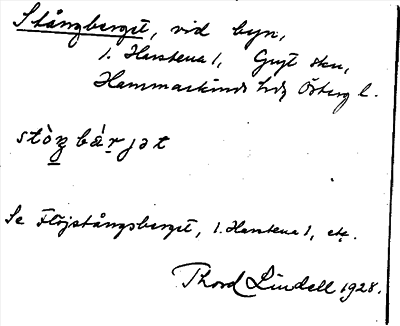 Stångberget, vid byn,
1. Harstena 1, Gryt skn,
Hammarkinds hd, Österg l.
stòŋbær̀jət
Se Flöjstångsberget, 1. Harstena 1, etc.
Thord Lindell 1928.